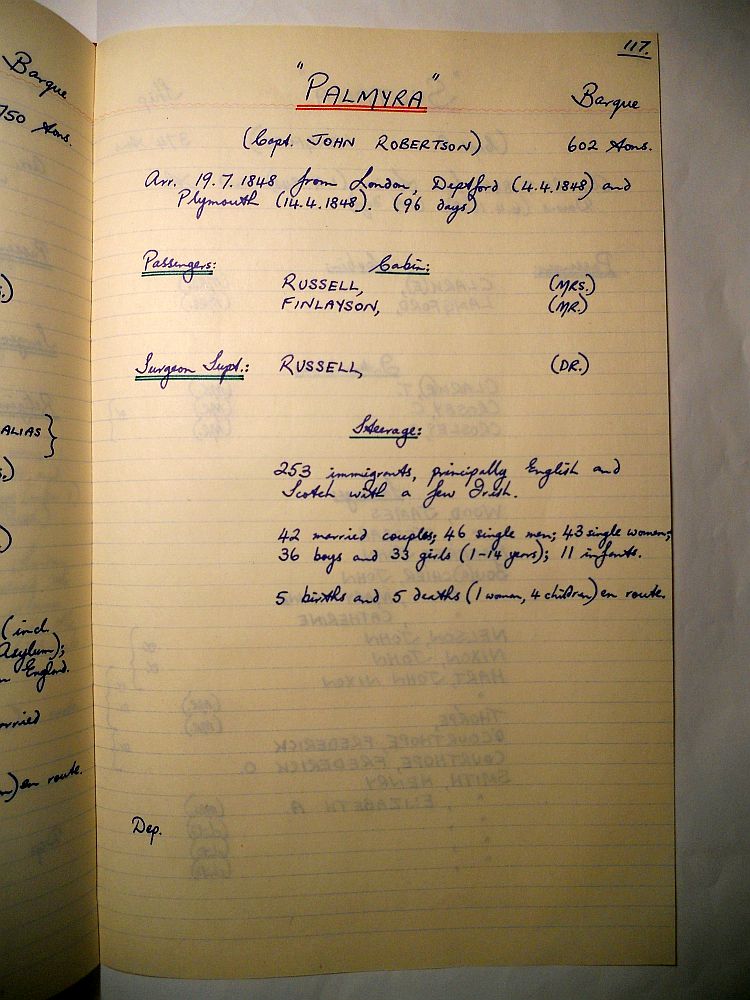 Barque
750 tons.
ALIAS
(incl.
Asylum);
England.
en route.
117.
"PALMYRA"
Barque
(Capt. JOHN ROBERTSON)
602 tons.
Arr. 19.7.1848 from London, Deptford (4.4.1848) and
Plymouth (14.4.1848). (96 days)
Passengers: Cabin:
RUSSELL, (MRS.)
FINLAYSON, (MR.)
Surgeon Supt.: RUSSELL, (DR.)
Steerage:
253 immigrants, principally English and
Scotch with a few Irish.
42 married couples; 46 single men; 43 single women;
36 boys and 33 girls (1-14 years); 11 infants.
5 births and 5 deaths (1 woman, 4 children) en route.
Dep.